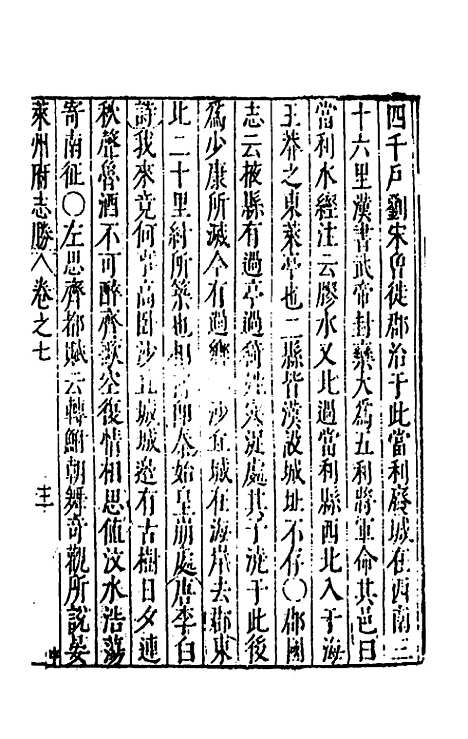 四千戸劉宋曾徙郡治于此當利廢城在西南三
十六里漢書武帝封欒大為五利將軍命其邑曰
當利水經注云膠水又北過當利縣西北入于海
王莽之東萊亭也二縣皆漢設城址不存〇郡國
志云掖縣有過亭過猗姓寒浞處其子澆于此後
為少康所滅今有過鄉 沙丘城在海岸去郡東
北二十里紂所築也相 即秦始皇崩處唐李白
詩我來竟何事高臥沙丘城城邊有古樹日夕連
秋聲魯酒不可醉齊歌空復情相思値汶水浩蕩
寄南征〇左思齊都賦云轉鮒朝舞奇觀所說晏
萊州府志勝 卷之七 十三